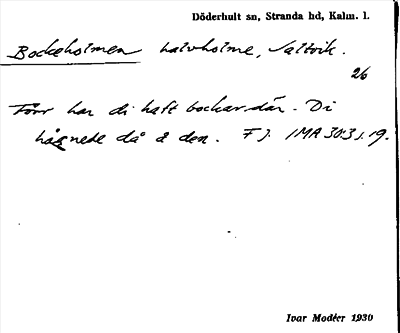 Döderhult sn, Stranda hd, Kalm. l.
Bockeholmen halvholme, Saltvik.
26
Förr har di haft bockar där. Di
hägnede då å den. F J. IMA 303 s. 19.
Ivar Modéer 1930